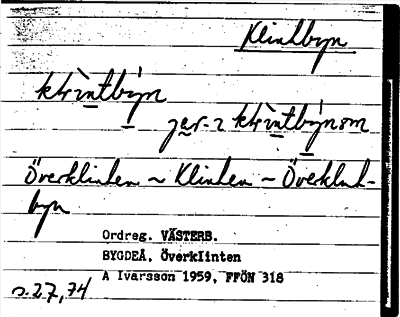 Klintbyn
klìntbýn
jer-2 klìntbýnom
Överklinten ~ Klinten ~ Överklint-
byn
Ordreg. VÄSTERB.
BYGDEÅ, Överklinten
A Ivarsson 1959, FFÖN 318
s.27,74